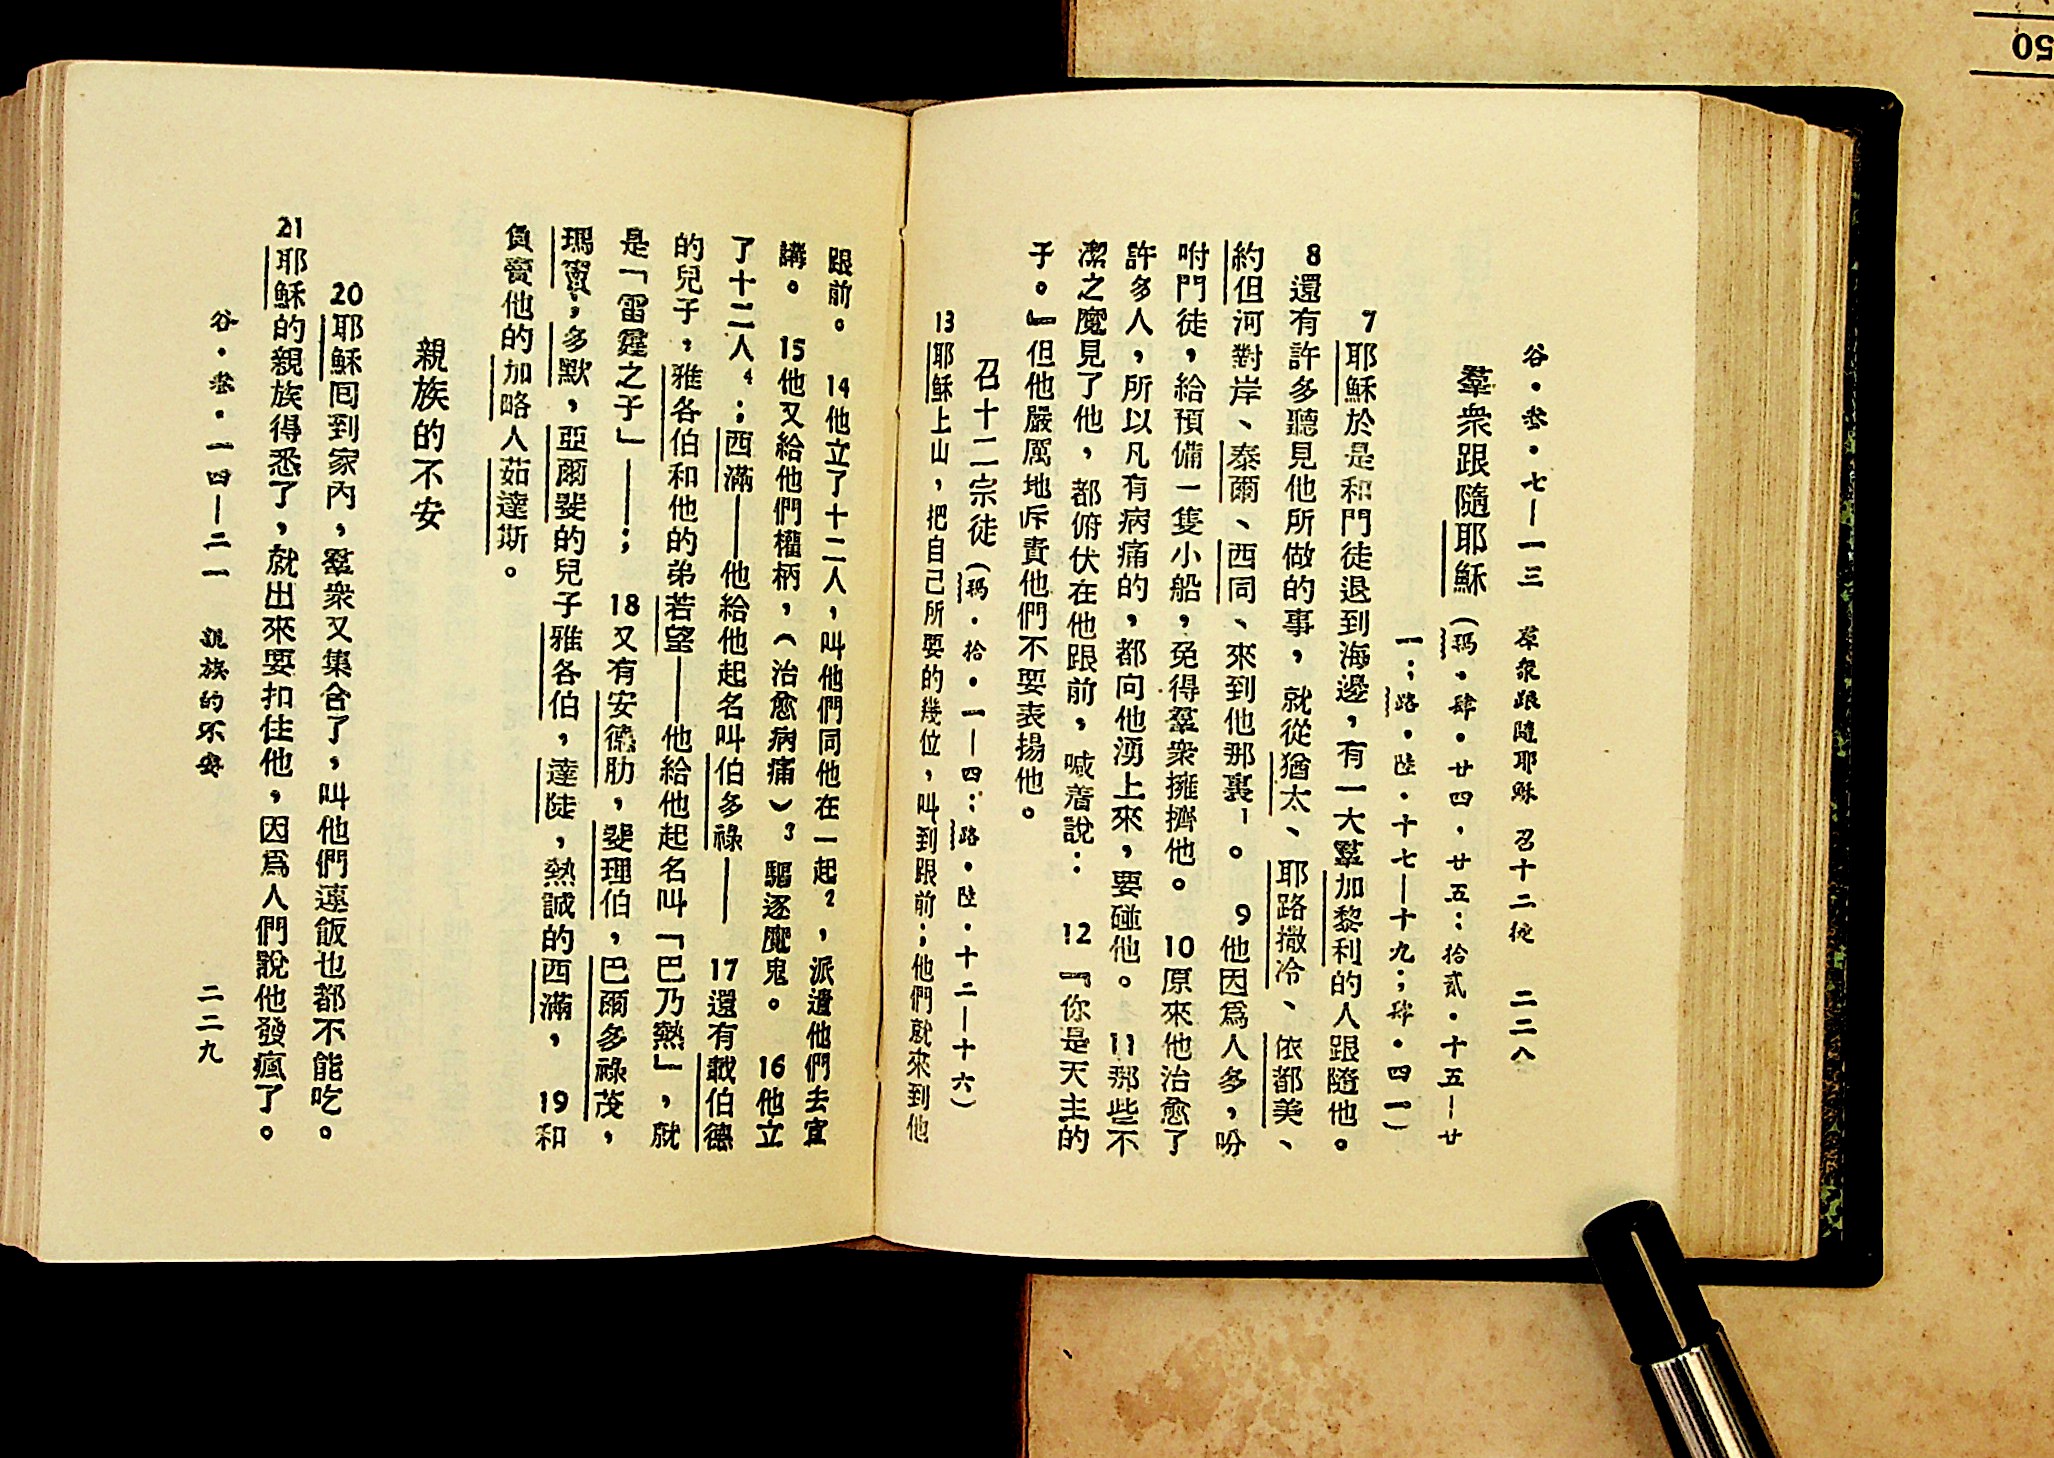 谷·叁·七—一三 羣衆跟隨耶穌 召十二徒 二二八
羣衆跟隨耶穌（瑪·肆·廿四，廿五；拾貳·十五—廿
一；路·陸·十七—十九；肆·四一）
7耶穌於是和門徒退到海邊，有一大羣加黎利的人跟隨他。
8還有許多聽見他所做的事，就從猶太、耶路撒冷、依都美、
約但河對岸、泰爾、西同、來到他那裏1。9他因爲人多，吩
咐門徒，給預備一隻小船，免得羣衆擁擠他。10原來他治愈了
許多人，所以凡有病痛的，都向他湧上來，要碰他。11那些不
潔之魔見了他，都俯伏在他跟前，喊着說：12『你是天主的
子。』但他嚴厲地斥責他們不要表揚他。
召十二宗徒（瑪·拾·一—四；路·陸·十二—十六）
13耶穌上山，把自己所要的幾位，叫到跟前；他們就來到他
跟前。14他立了十二人，叫他們同他在一起2，派遣他們去宣
講。15他又給他們權柄，（治愈病痛）3驅逐魔鬼。16他立
了十二人4；西滿——他給他起名叫伯多祿——17還有載伯德
的兒子，雅各伯和他的弟若望——他給他起名叫「巴乃熱」，就
是「雷霆之子」——；18又有安德肋，斐理伯，巴爾多祿茂，
瑪竇；多默，亞爾斐的兒子雅各伯，達陡，熱誠的西滿，19和
負賣他的加略人茹達斯。
親族的不安
20耶穌囘到家內，羣衆又集合了，叫他們連飯也都不能吃。
21耶穌的親族得悉了，就出來要扣住他，因爲人們說他發瘋了。
谷·叁·一四—二一 親族的不安 二二九
50